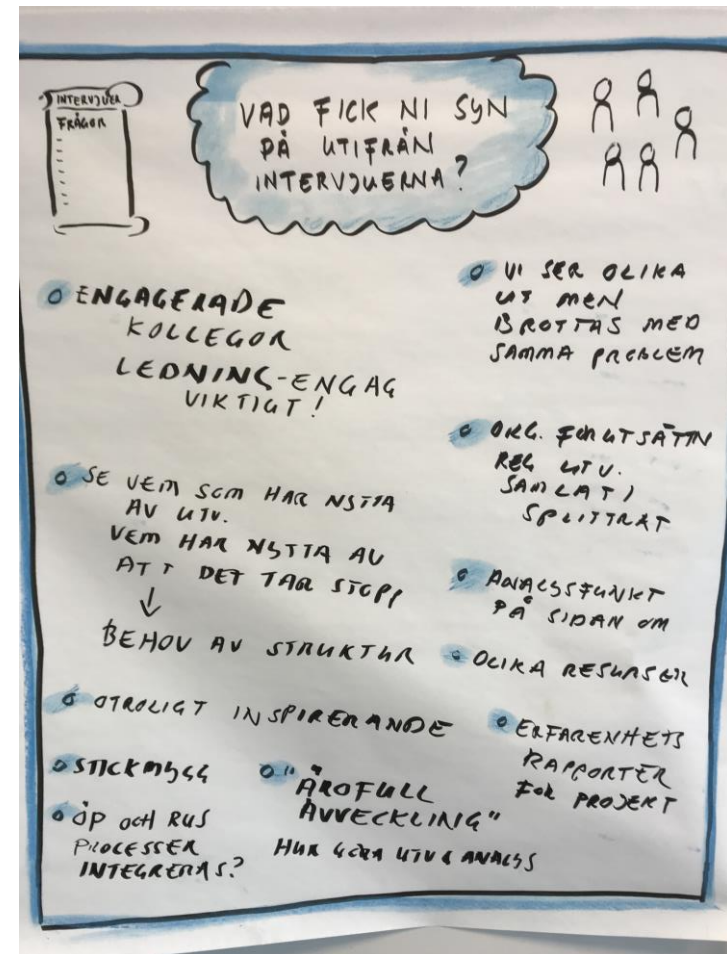 INTERVJUER
FRÅGOR
VAD FICK NI SYN
PÅ UTIFRÅN
INTERVJUERNA?
O ENGAGERADE
KOLLEGOR
LEDNING-ENGAG
VIKTIGT!
O SE VEM SOM HAR NYTTA
AV UTV.
VEM HAR NYTTA AV
ATT DET TAR STOPP
↓
BEHOV AV STRUKTUR
O OTROLIGT INSPIRERANDE
O STICKMYGG
O ÖP OCH RUS
PROCESSER
INTEGRERAS?
O "ÄROFULL
AVVECKLING"
HUR GÖRA UTV & ANALYS
O VI SER OLIKA
UT MEN
BROTTAS MED
SAMMA PROBLEM
O ORG. FÖRUTSÄTTN
REG UTV.
SAMLAT/
SPLITTRAT
O ANALYSFUNKT
PÅ SIDAN OM
O OLIKA RESURSER
O ERFARENHETS
RAPPORTER
FÖR PROJEKT